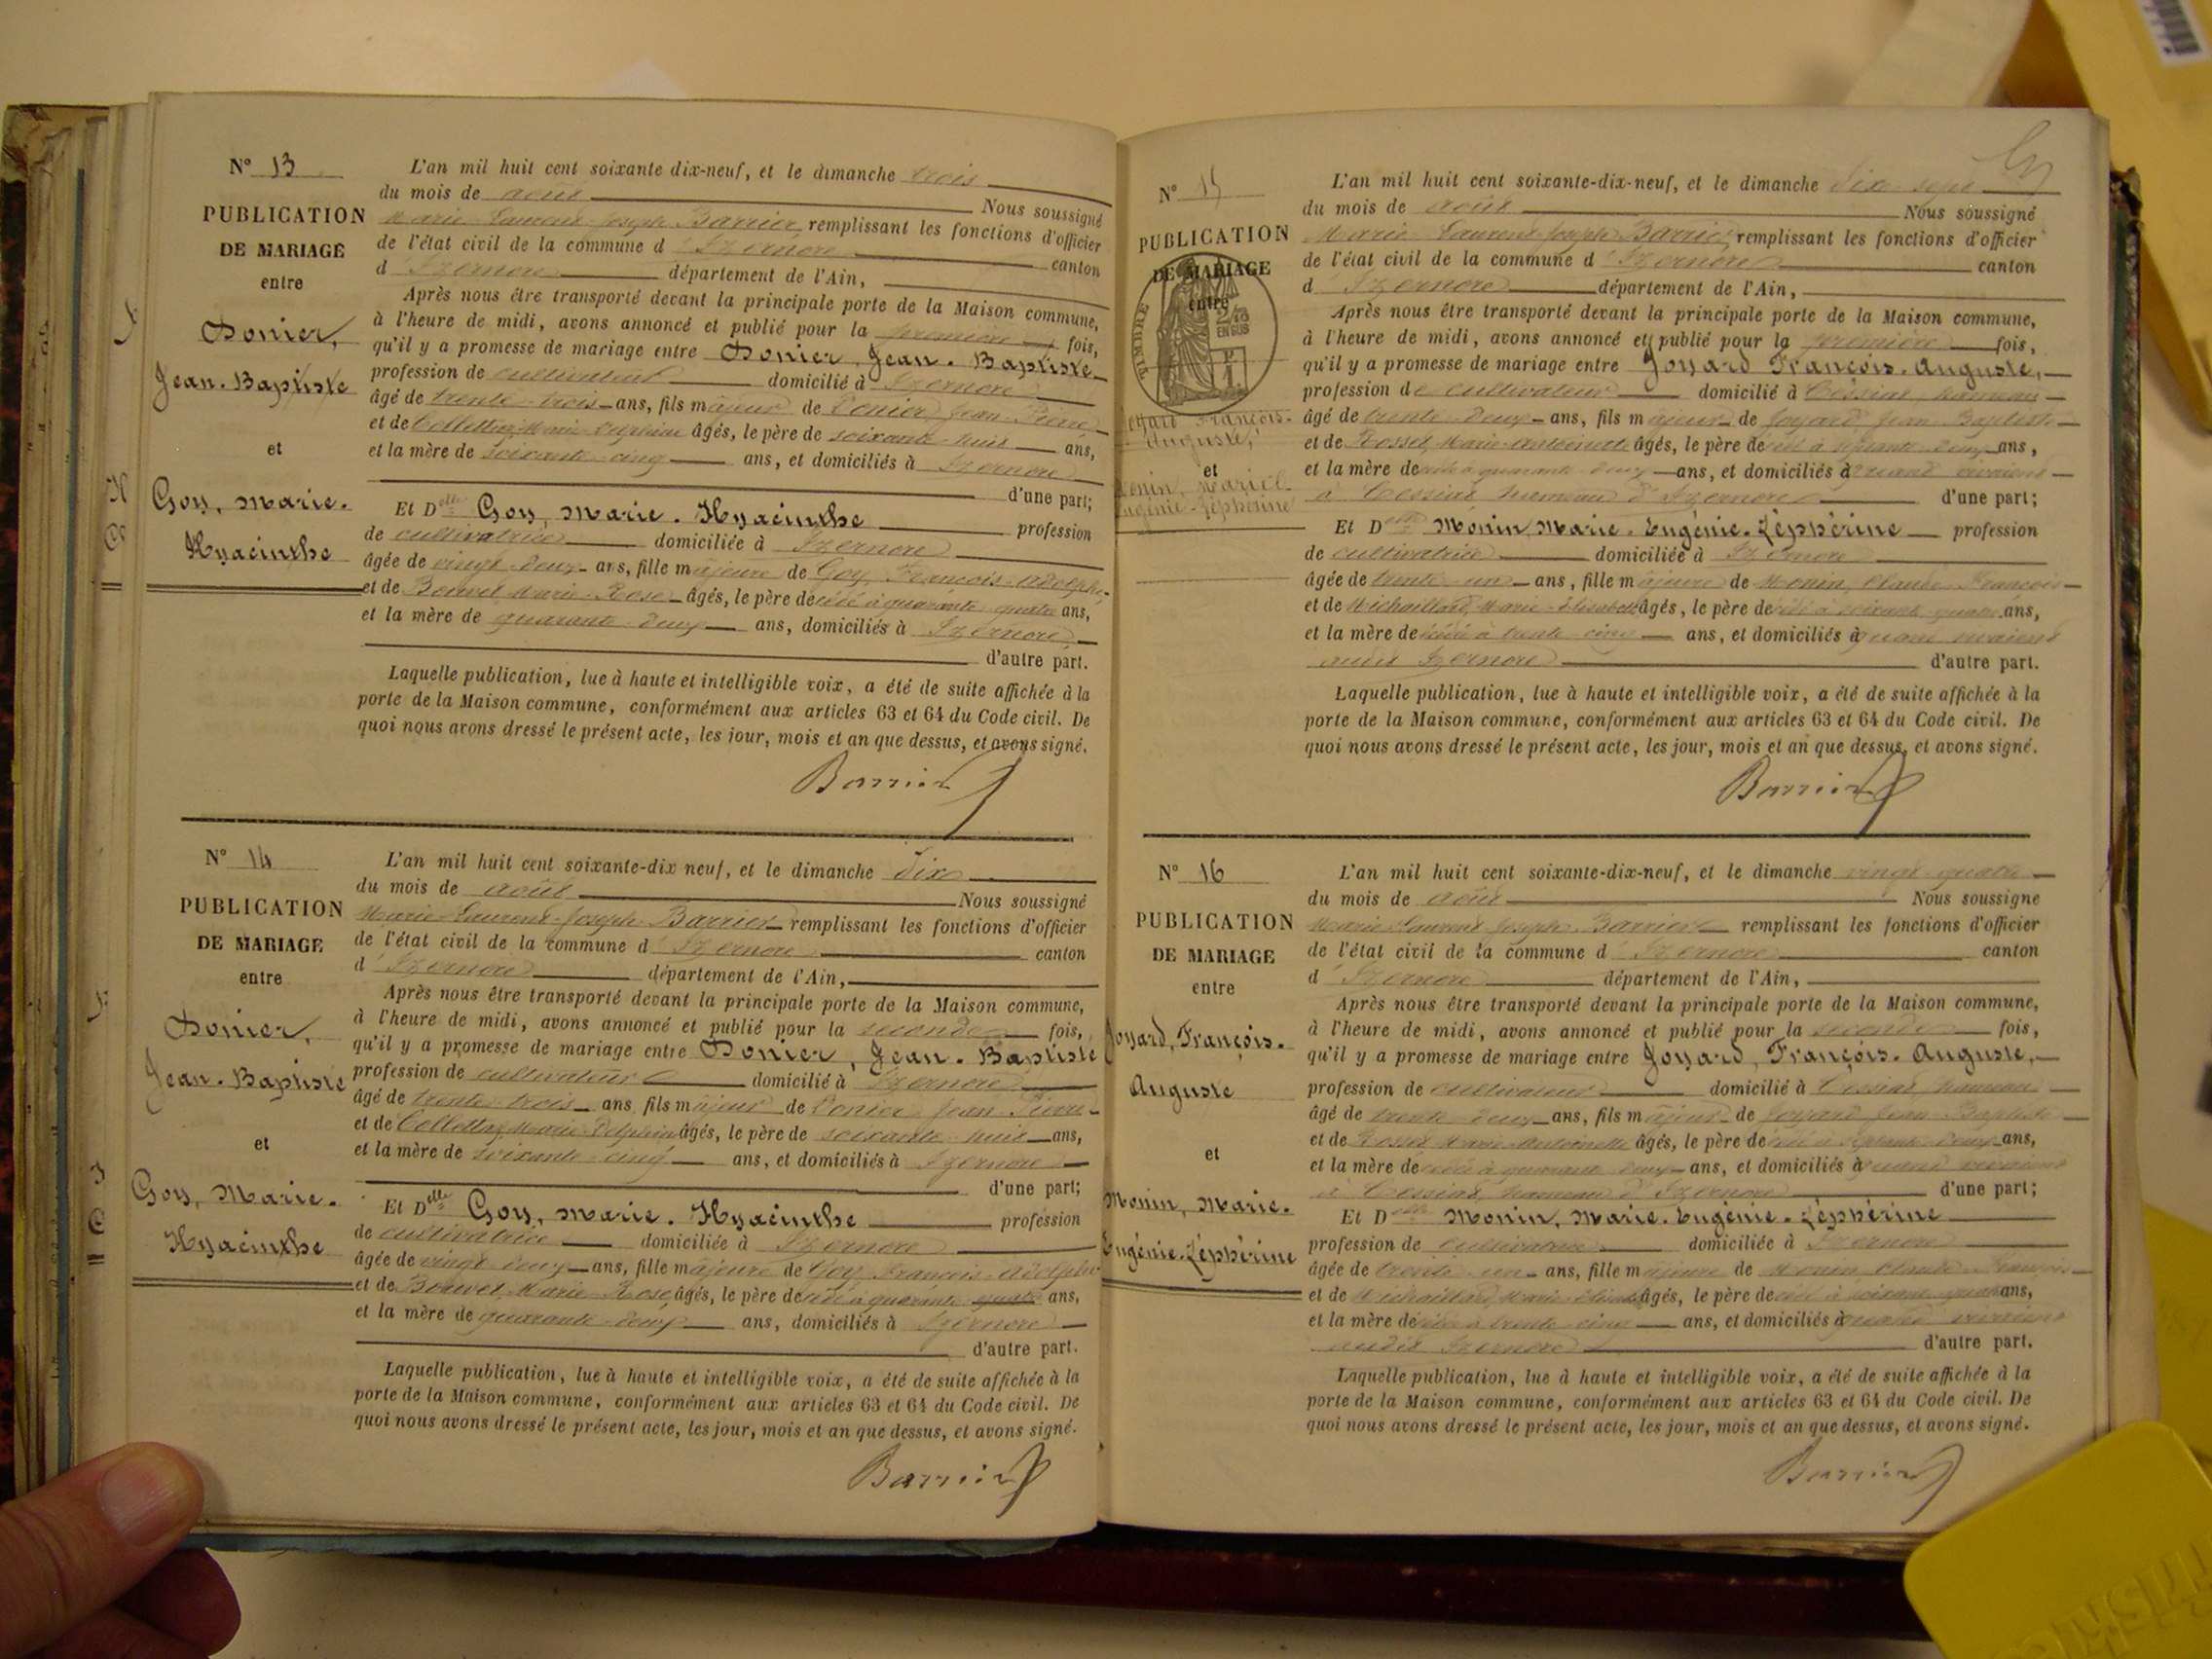 N° 13
PUBLICATION
DE MARIAGE
entre
Donier,
Jean-Baptiste
et
Goy, Marie-
Hyacinthe
L'an mil huit cent soixante dix-neuf, et le dimanche trois
du mois de août Nous soussigné
Marie Laurent Joseph Barrier, remplissant les fonctions d'officier
de l'état civil de la commune d'Izernore canton
d'Izernore département de l'Ain,
Après nous être transporté devant la principale porte de la Maison commune,
à l'heure de midi, avons annoncé et publié pour la première fois,
qu'il y a promesse de mariage entre Donier, Jean-Baptiste
profession de cultivateur domicilié à Izernore
âgé de trente-trois ans, fils majeur de Donier Jean Pierre
et de Collettaz Marie Delphine âgés, le père de soixante-huit ans,
et la mère de soixante-cinq ans, et domiciliés à Izernore
d'une part;
Et Delle Goy, Marie-Hyacinthe profession
de cultivatrice domiciliée à Izernore
âgée de vingt-deux ans, fille majeure de Goy François-Adolphe
et de Bouvet Marie-Rose âgés, le père décédé à quarante-quatre ans,
et la mère de quarante-deux ans, domiciliés à Izernore
d'autre part.
Laquelle publication, lue à haute et intelligible voix, a été de suite affichée à la
porte de la Maison commune, conformément aux articles 63 et 64 du Code civil. De
quoi nous avons dressé le présent acte, les jour, mois et an que dessus, et avons signé.
Barrier
N° 14
PUBLICATION
DE MARIAGE
entre
Donier,
Jean-Baptiste
et
Goy, Marie-
Hyacinthe
L'an mil huit cent soixante-dix neuf, et le dimanche dix
du mois de août Nous soussigné
Marie-Laurent-Joseph Barrier remplissant les fonctions d'officier
de l'état civil de la commune d'Izernore canton
d'Izernore département de l'Ain,
Après nous être transporté devant la principale porte de la Maison commune,
à l'heure de midi, avons annoncé et publié pour la seconde fois,
qu'il y a promesse de mariage entre Donier, Jean-Baptiste
profession de cultivateur domicilié à Izernore
âgé de trente-trois ans fils majeur de Donier Jean Pierre
et de Collettaz Marie-Delphine âgés, le père de soixante-huit ans,
et la mère de soixante-cinq ans, et domiciliés à Izernore
d'une part;
Et Delle Goy, Marie-Hyacinthe profession
de cultivatrice domiciliée à Izernore
âgée de vingt-deux ans, fille majeure de Goy François-Adolphe
et de Bouvet Marie Rose âgés, le père décédé à quarante quatre ans,
et la mère de quarante-deux ans, domiciliés à Izernore
d'autre part.
Laquelle publication, lue à haute et intelligible voix, a été de suite affichée à la
porte de la Maison commune, conformément aux articles 63 et 64 du Code civil. De
quoi nous avons dressé le présent acte, les jour, mois et an que dessus, et avons signé.
Barrier
N° 15
PUBLICATION
DE MARIAGE
entre
TIMBRE
2/10
EN SUS
Joyard François-
Auguste,
et
Monin, Marie-
Eugénie-Zéphérine
L'an mil huit cent soixante-dix-neuf, et le dimanche dix-sept
du mois de août Nous soussigné
Marie-Laurent-Joseph Barrier, remplissant les fonctions d'officier
de l'état civil de la commune d'Izernore canton
d'Izernore département de l'Ain,
Après nous être transporté devant la principale porte de la Maison commune,
à l'heure de midi, avons annoncé et publié pour la première fois,
qu'il y a promesse de mariage entre Joyard François-Auguste,
profession de cultivateur domicilié à Cessiat, hameau
âgé de trente-deux ans, fils majeur de Joyard Jean-Baptiste
et de Rosset, Marie-Antoinette âgés, le père décédé à septante-deux ans,
et la mère décédée à quarante-deux ans, et domiciliés quand vivaient
à Cessiat, hameau d'Izernore d'une part;
Et Delle Monin Marie-Eugénie-Zéphérine profession
de cultivatrice domiciliée à Izernore
âgée de trente-un ans, fille majeure de Monin, Claude-François
et de Michaillard, Marie-Elisabeth âgés, le père décédé à soixante-quatre ans,
et la mère décédée à trente-cinq ans, et domiciliés quand vivaient
audit Izernore d'autre part.
Laquelle publication, lue à haute et intelligible voix, a été de suite affichée à la
porte de la Maison commune, conformément aux articles 63 et 64 du Code civil. De
quoi nous avons dressé le présent acte, les jour, mois et an que dessus, et avons signé.
Barrier
N° 16
PUBLICATION
DE MARIAGE
entre
Joyard, François-
Auguste
et
Monin, Marie-
Eugénie-Zéphérine
L'an mil huit cent soixante-dix-neuf, et le dimanche vingt-quatre
du mois de août Nous soussigné
Marie Laurent Joseph Barrier remplissant les fonctions d'officier
de l'état civil de la commune d'Izernore canton
d'Izernore département de l'Ain,
Après nous être transporté devant la principale porte de la Maison commune,
à l'heure de midi, avons annoncé et publié pour la seconde fois,
qu'il y a promesse de mariage entre Joyard, François-Auguste,
profession de cultivateur domicilié à Cessiat, hameau
âgé de trente-deux ans, fils majeur de Joyard Jean-Baptiste
et de Rosset Marie-Antoinette âgés, le père décédé à septante-deux ans,
et la mère décédée à quarante-deux ans, et domiciliés quand vivaient
à Cessiat, hameau d'Izernore d'une part;
Et Delle Monin, Marie-Eugénie-Zéphérine
profession de cultivatrice domiciliée à Izernore
âgée de trente-un ans, fille majeure de Monin Claude-François
et de Michaillard, Marie-Elisabeth âgés, le père décédé à soixante-quatre ans,
et la mère décédée à trente-cinq ans, et domiciliés quand vivaient
audit Izernore d'autre part.
Laquelle publication, lue à haute et intelligible voix, a été de suite affichée à la
porte de la Maison commune, conformément aux articles 63 et 64 du Code civil. De
quoi nous avons dressé le présent acte, les jour, mois et an que dessus, et avons signé.
Barrier